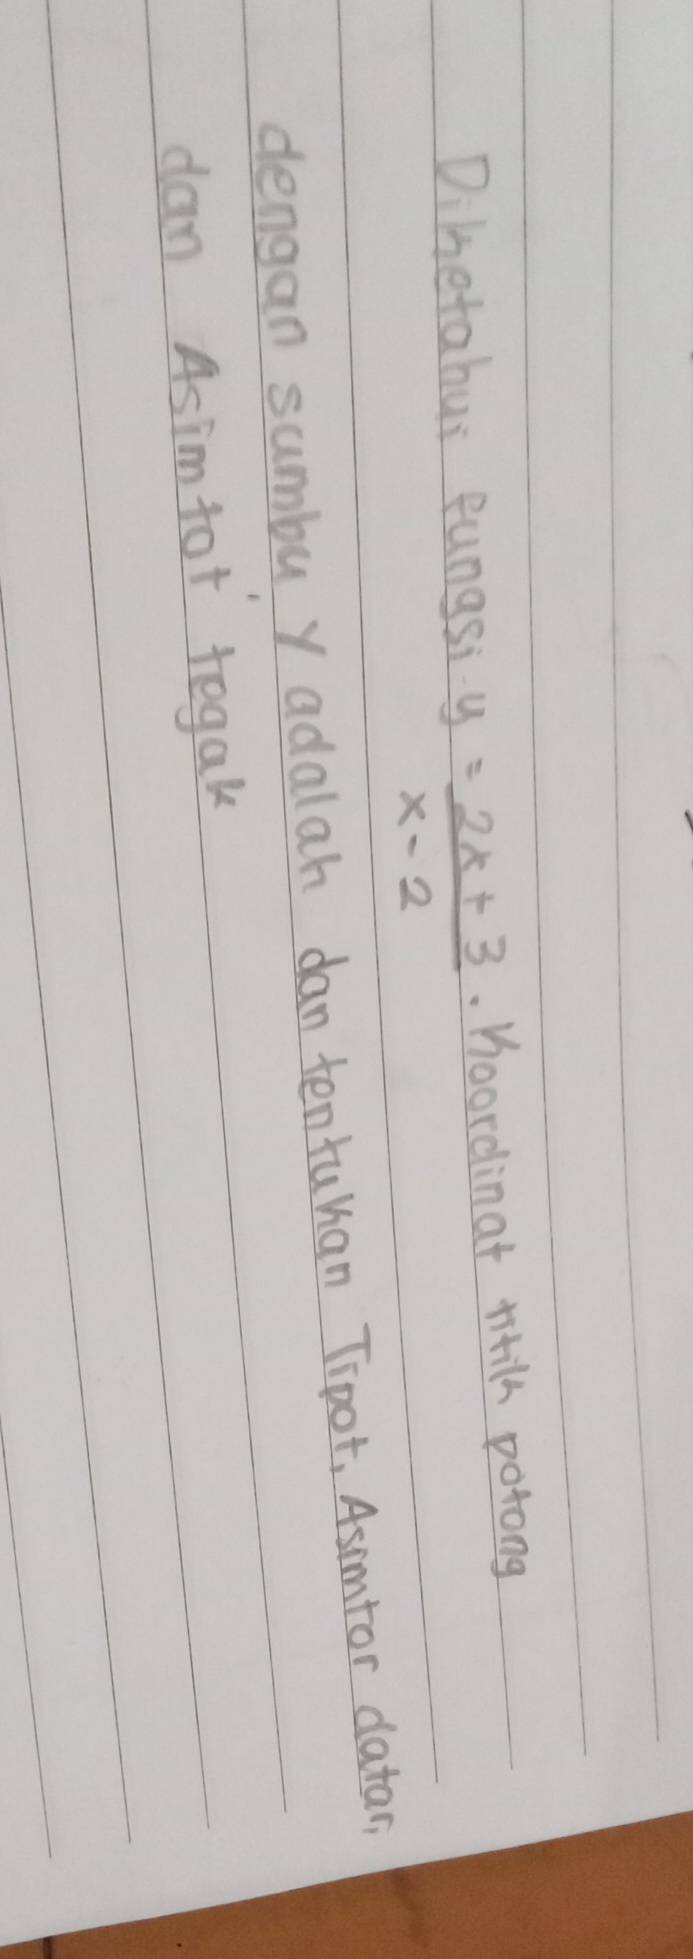 Diketahui fungsi y = 2x + 3 . Koordinat titik potong
x - 2
dengan sumbu Y adalah dan tentukan Tipot, Asimtor datar,
dan Asimtot tegak